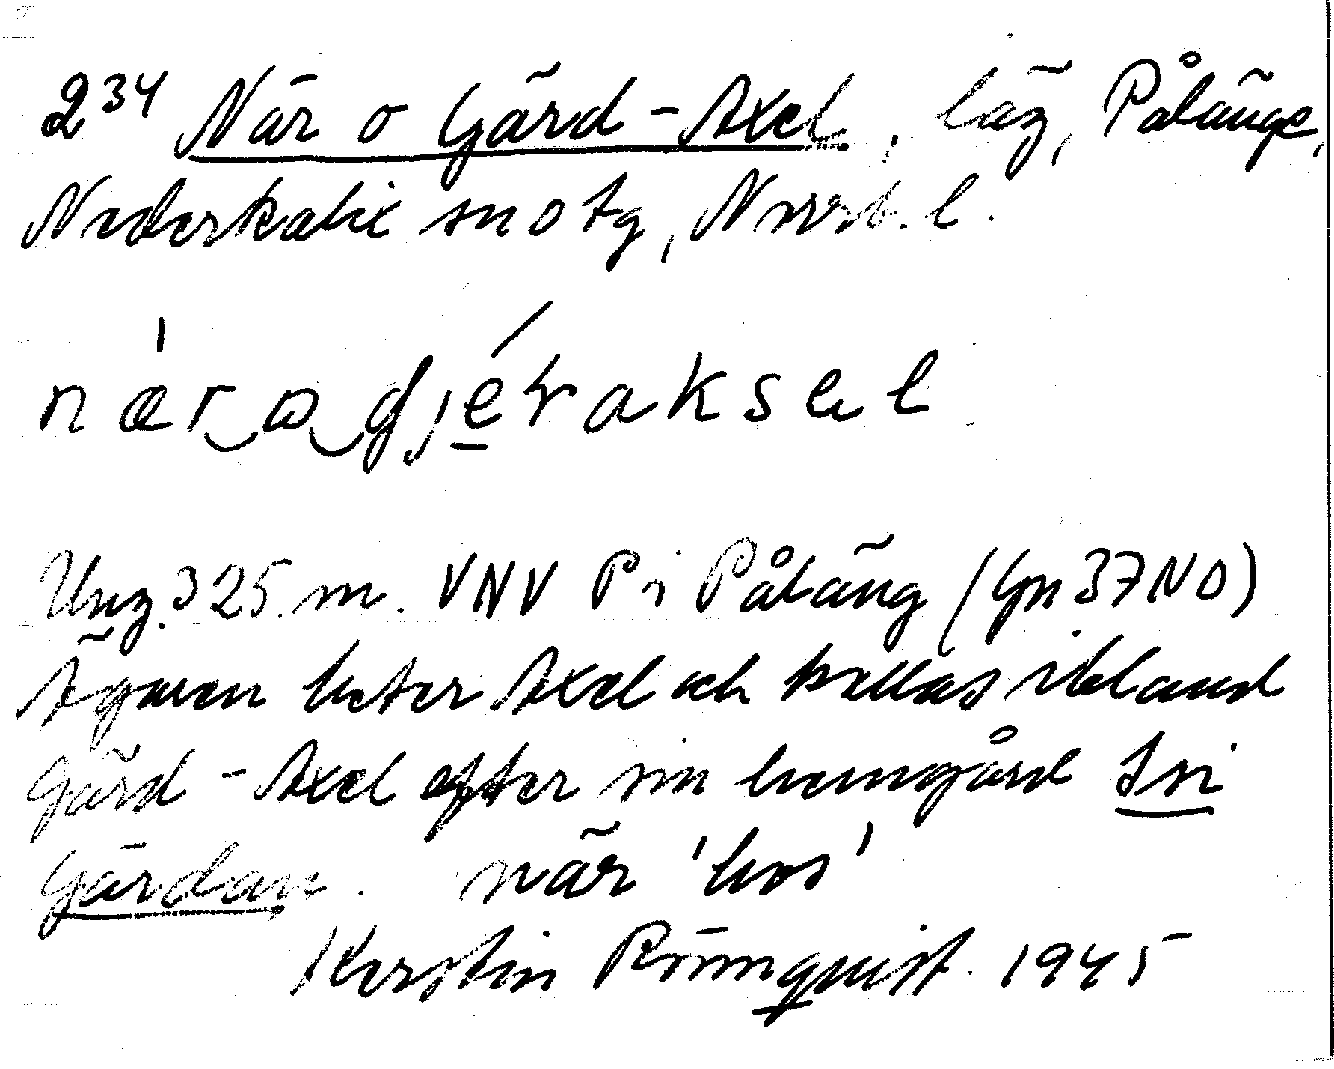 234 När o Gärd-Axel, läg, Pålänge,
Nederkalix sn o tg, Norrb. l.
næ̀r o djéraksel
Ung. 325 m. VNV P i Påläng (Gn 37 NO)
Ägaren heter Axel och kallas ibland
Gärd-Axel efter sin hemgård
Gärdan. när 'hos'
Kerstin Rönnquist. 1945